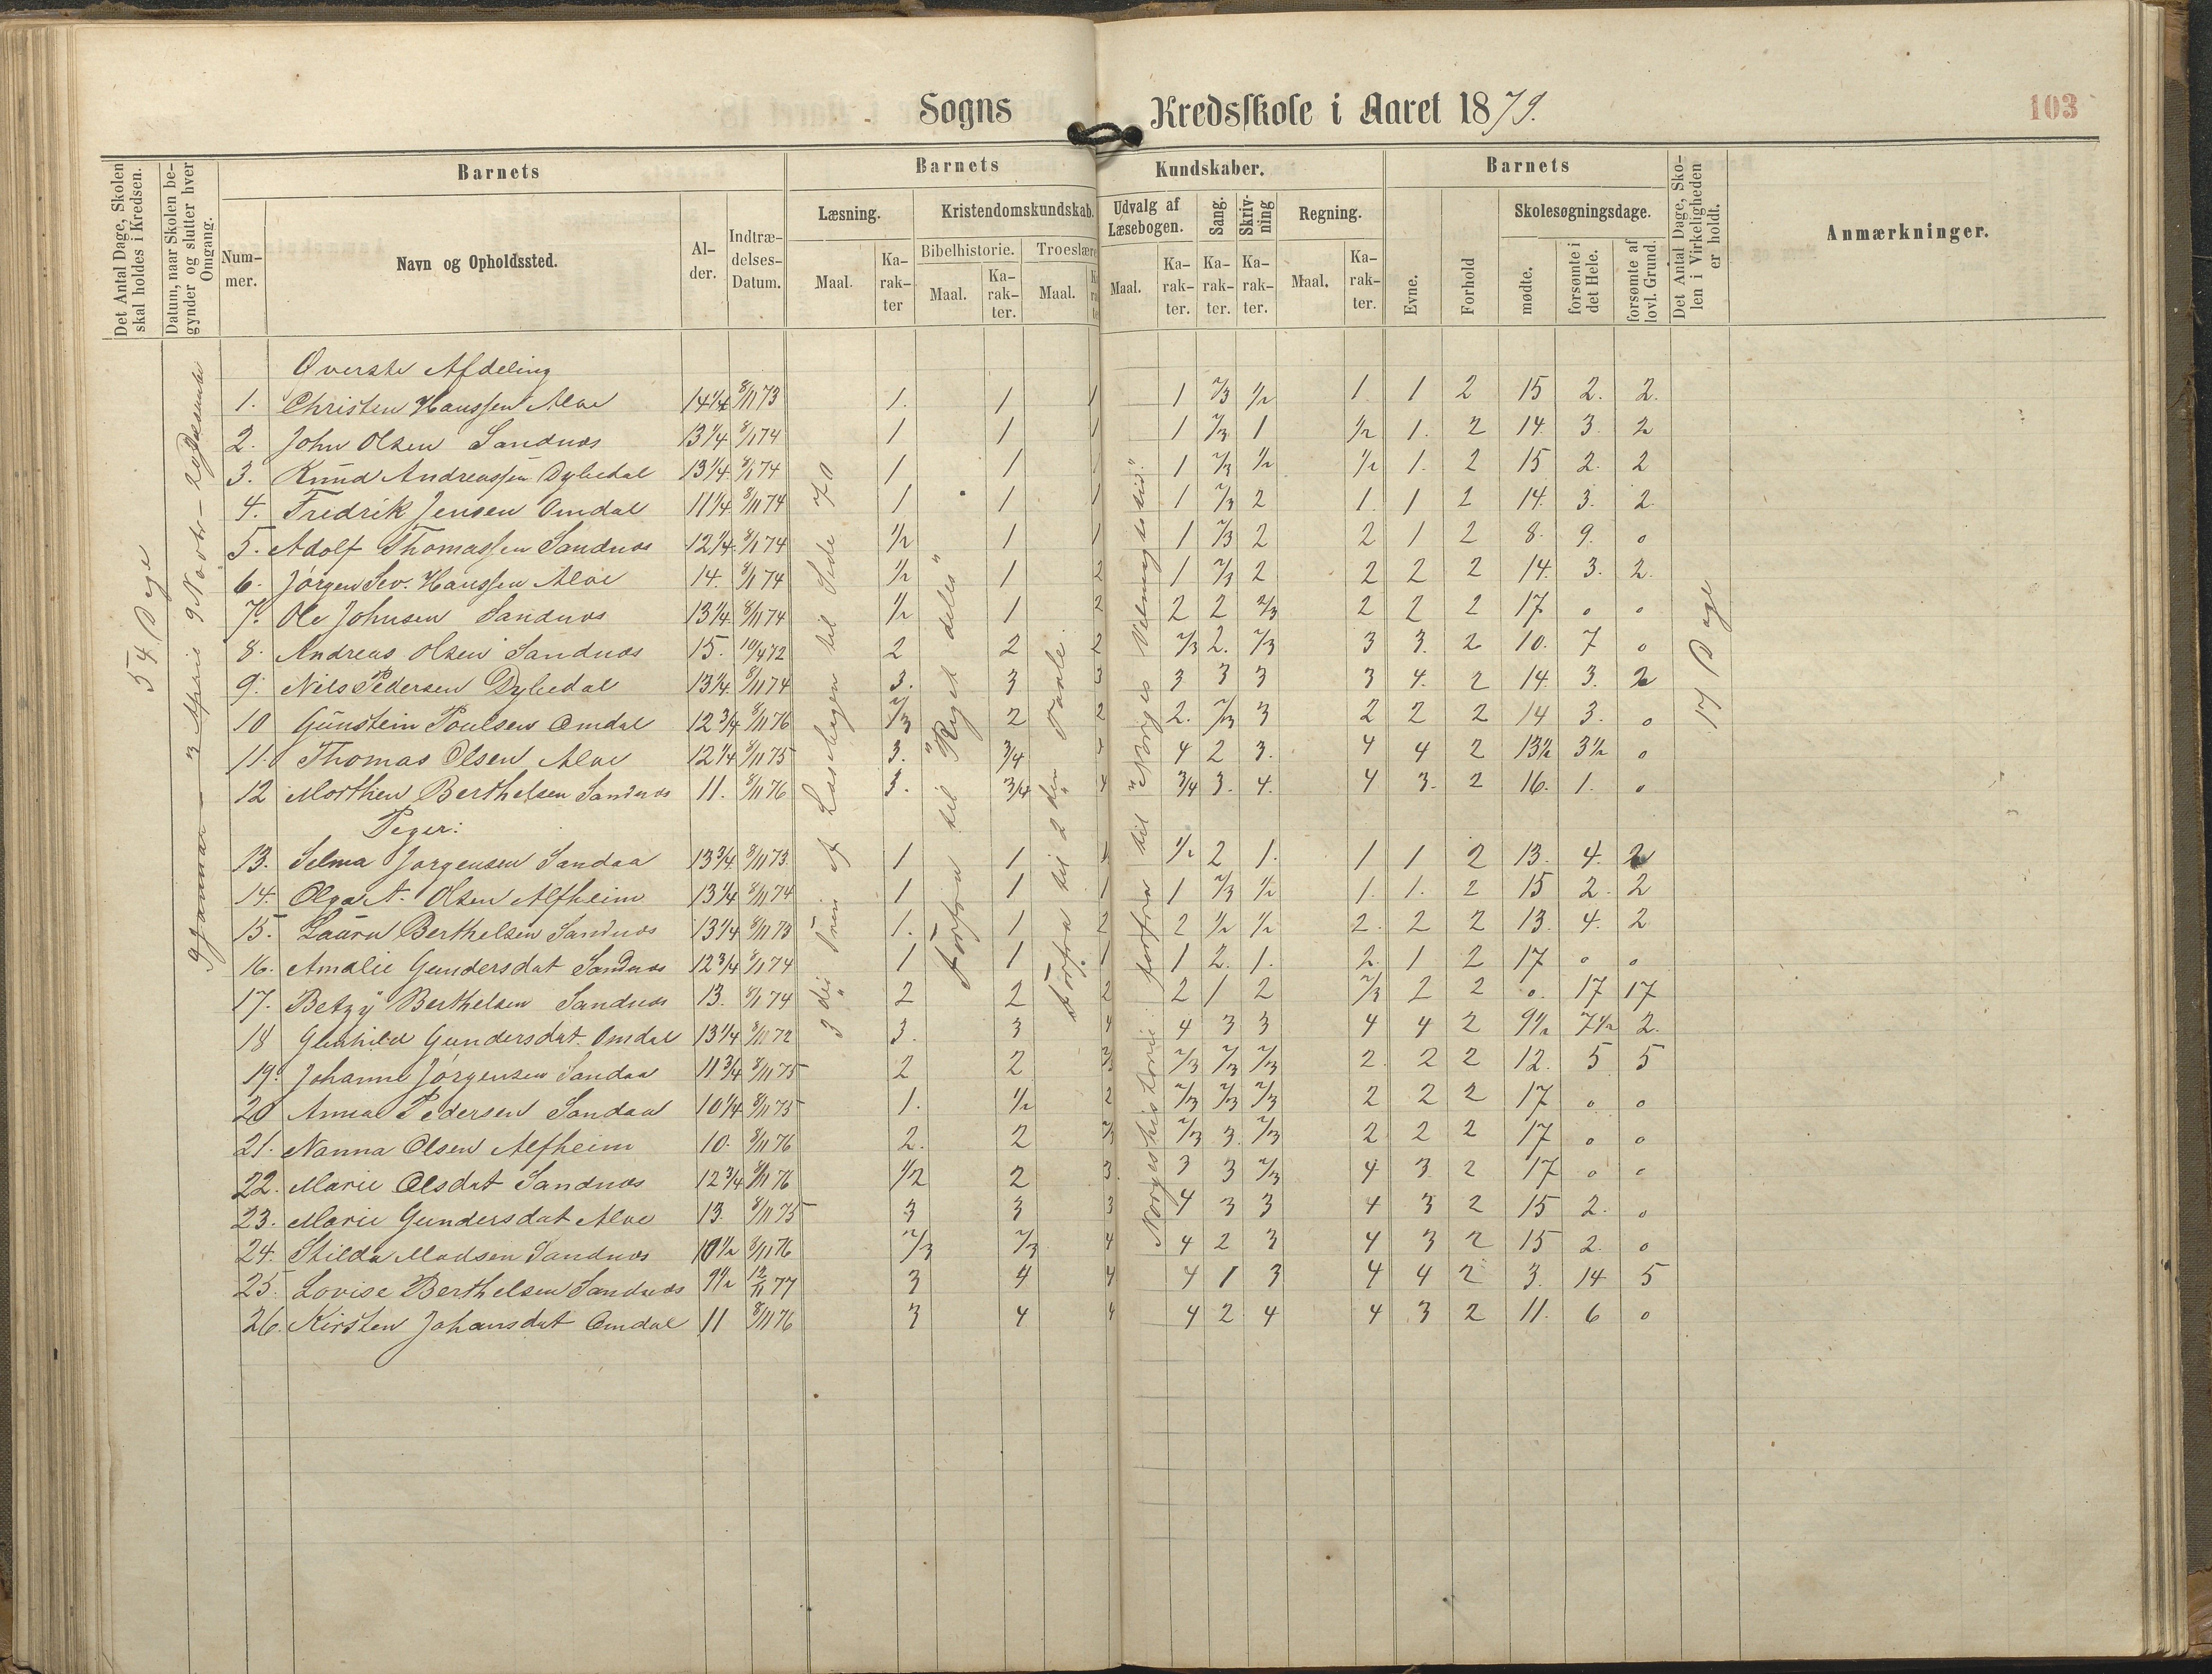 Sogns Kredsskole i Aaret 1879.
103
Det Antal Dage, Skolen skal holdes i Kredsen.
Datum, naar Skolen begynder og slutter hver Omgang.
Barnets
Nummer.
Navn og Opholdssted.
Alder.
Indtrædelses-Datum.
Barnets Kundskaber.
Læsning.
Maal.
Karakter
Kristendomskundskab.
Bibelhistorie.
Maal.
Karakter.
Troeslære
Maal.
Udvalg af Læsebogen.
Maal.
Karakter.
Sang.
Karakter.
Skrivning
Karakter.
Regning.
Maal.
Karakter.
Barnets
Evne.
Forhold
Skolesøgningsdage.
mødte.
forsømte i det Hele.
forsømte af lovl. Grund.
Det Antal Dage, Skolen i Virkeligheden er holdt.
Anmærkninger.
54 Dage
17 Dage
Øverste Afdeling
1. Christen Hanssen Alve 14 1/4 8/11 73 1. 1 1 1 2/3 1/2 1 1 2 15 2. 2.
2. John Olsen Sandnæs 13 1/4 8/1 74 1 1 1 1 2/3 1 1/2 1. 2 14. 3. 2
3. Knud Andreassen Dybedal 13 1/4 8/1 74 1 1 1 1 2/3 1/2 1/2 1. 2 15 2. 2
4. Fredrik Jensen Omdal 11 1/4 8/11 74 1 1 1 1 2/3 2 1. 1 2 14. 3. 2.
5. Adolf Thomassen Sandnæs 12 1/4 8/1 74 1/2 1 1 1 2/3 2 2 1 2 8. 9. 0
6. Jørgen Sev. Hanssen Alve 14. 8/1 74 1/2 1 2 1 2/3 2 2 2 2 14. 3. 2.
7. Ole Johnsen Sandnæs 13 1/4 8/11 74 1/2 1 2 2 2 2/3 2 2 2 17 0 0
8. Andreas Olsen Sandnæs 15. 10/4 72 2 2 2 2/3 2. 2/3 3 3. 2 10. 7 0
9. Nils Pedersen Dybedal 13 1/4 8/11 74 3. 3 3 3 3 3 3 4. 2 14. 3. 2
10 Gunstein Poulsen Omdal 12 3/4 8/11 76 2/3 2 2 2. 2/3 3 2 2 2 14 3. 0
11. Thomas Olsen Alve 12 1/4 8/11 75 3. 3/4 4 4 2 3. 4 4 2 13 1/2 3 1/2 0
12 Morthen Berthelsen Sandnæs 11. 8/11 76 3. 3/4 4 3/4 3. 4. 4 3. 2 16. 1. 0
Piger:
13. Selma Jørgensen Sandaa 13 3/4 8/11 73 1 1 1 1/2 2 1. 1 1 2 13. 4. 2
14. Olga A. Olsen Alfheim 13 1/4 8/11 74 1 1 1 1 2/3 1/2 1. 1. 2 15 2. 2
15. Laura Berthelsen Sandnæs 13 1/4 8/11 73 1. 1 2 2 1/2 1/2 2. 2 2 13. 4. 2
16. Amalie Gundersdat Sandnæs 12 3/4 8/1 74 1 1 1 1 2. 1. 2. 1 2 17 0 0
17. Betzy Berthelsen Sandnæs 13. 8/1 74 2 2 2 2 1 2 2/3 2 2 0. 17 17
18 Gunhild Gundersdat. Omdal 13 1/4 8/11 72 3. 3 4 4 3 3 4 4 2 9 1/2 7 1/2 2.
19. Johanne Jørgensen Sandaa 11 3/4 8/11 75 2 2 2/3 2/3 2/3 2/3 2. 2 2 12. 5 5
20 Anna Pedersen Sandaa 10 1/4 8/11 75 1. 1/2 2 2/3 2/3 2/3 2 2 2 17 0 0
21. Nanna Olsen Alfheim 10. 8/11 76 2. 2 2/3 2/3 3. 2/3 2 2 2 17 0 0
22. Marie Olsdat Sandnæs 12 3/4 8/11 76 1/2 2 3. 3 3 2/3 4 3 2 17 0 0
23. Marie Gundersdat Alve 13. 8/11 75 3 3 3 4 3 3 4 3 2 15 2. 0
24. Stilda Madsen Sandnæs 10 1/2 8/11 76 2/3 2/3 4 4 2 3 4 3 2 15 2. 0
25. Lovise Berthelsen Sandnæs 9 1/2 12/11 77 3 4 4 4 1 3 4 4 2 3. 14 5
26. Kirsten Johansdat Omdal 11 8/11 76 3 4 4 4 2 4 4 3 2 11. 6 0
3die Trin af Læsebogen til Side 70
Forfra til "Riget deles"
Forfra til 2den Tavle.
Norgeshistorie: forfra til "Norges Velmagtstid."